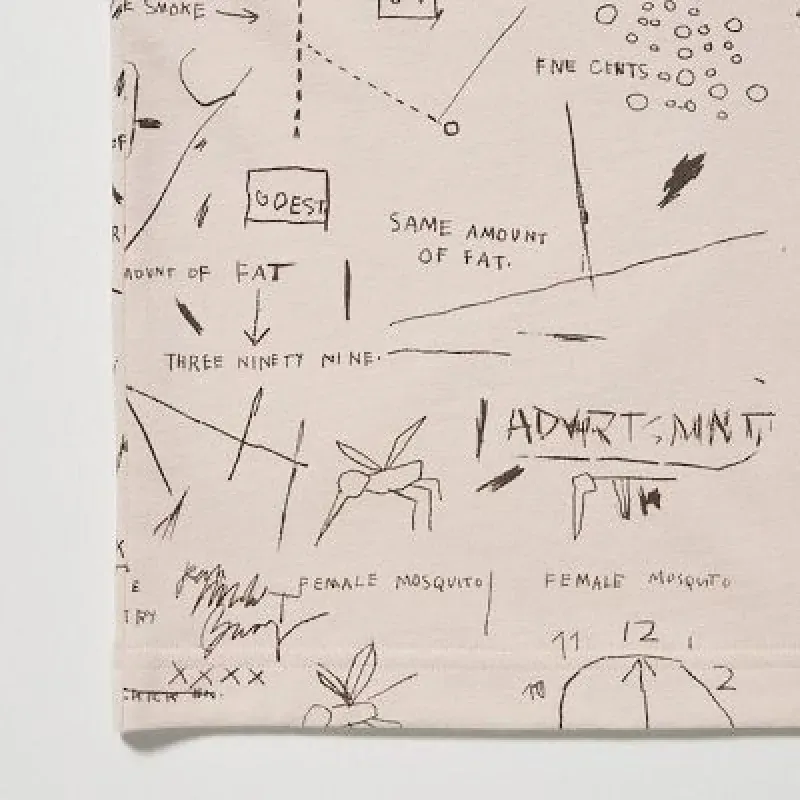 SMOKE
FIVE CENTS
OF
GDEST
SAME AMOUNT
OF FAT.
R
AOUNT OF FAT
THREE NINETY NINE.
ADVRTSMNT
K
E
FEMALE MOSQUITO
FEMALE MOSQUITO
TRY
11 12 1
XXXX
10 2